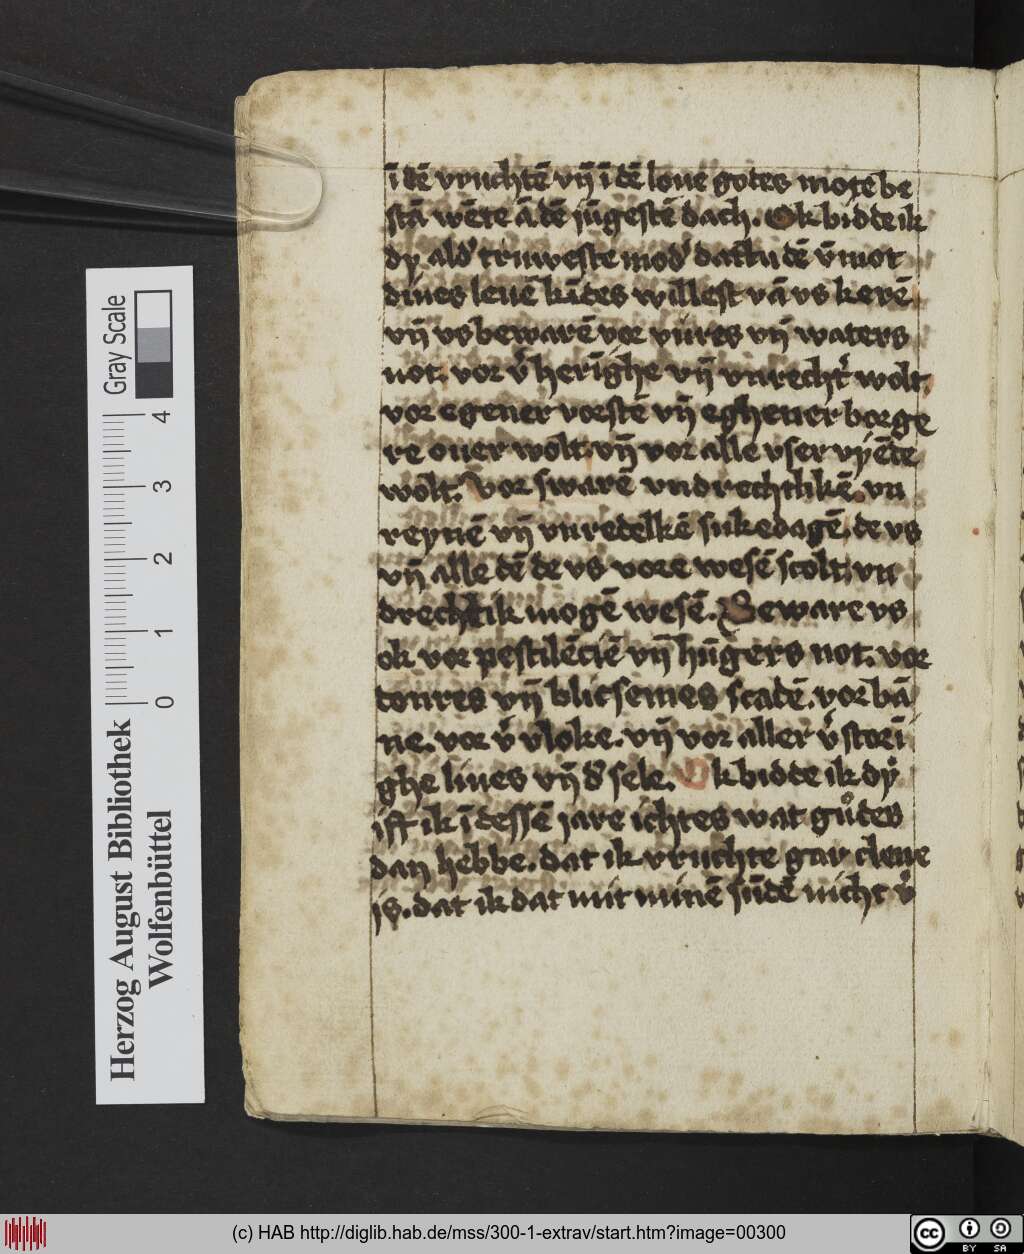 ī dē vruchtē vn̄ ī dē loue godes mote be
stā wēte ā dē jūgestē dach. Ok bidde ik
dy ald' truweste mod' dattu dē v̄mot
dines leuē kīdes willest vā vs kerē
vn̄ vs bewarē vor vures vn̄ waters
not. vor v'herīghe vn̄ vnrecht' wolt.
vor egener vorstē vn̄ eghener borge
re ouer wolt. vn̄ vor alle vser vyēde
wolt. Vor swarē vndrechlikē. vn
reynē vn̄ vnredelkē sukedagē. de vs
vn̄ alle dē de vs vore wesē scolt. vn
drechtik mogē wesē. Beware vs
ok vor pestilēciē vn̄ hūgers not. vor
donres vn̄ blicsemes scadē. vor bā
ne. vor v'vloke. vn̄ vor aller v'storī
ghe liues vn̄ d' sele. Ok bidde ik dy
ift ik ī dessē jare ichtes wat gůdes
dan hebbe. dat ik vruchte gar clene
is. dat ik dat mit minē sūdē nicht v'
Herzog August Bibliothek
Wolfenbüttel
0 1 2 3 4
Gray Scale
(c) HAB http://diglib.hab.de/mss/300-1-extrav/start.htm?image=00300
cc BY SA